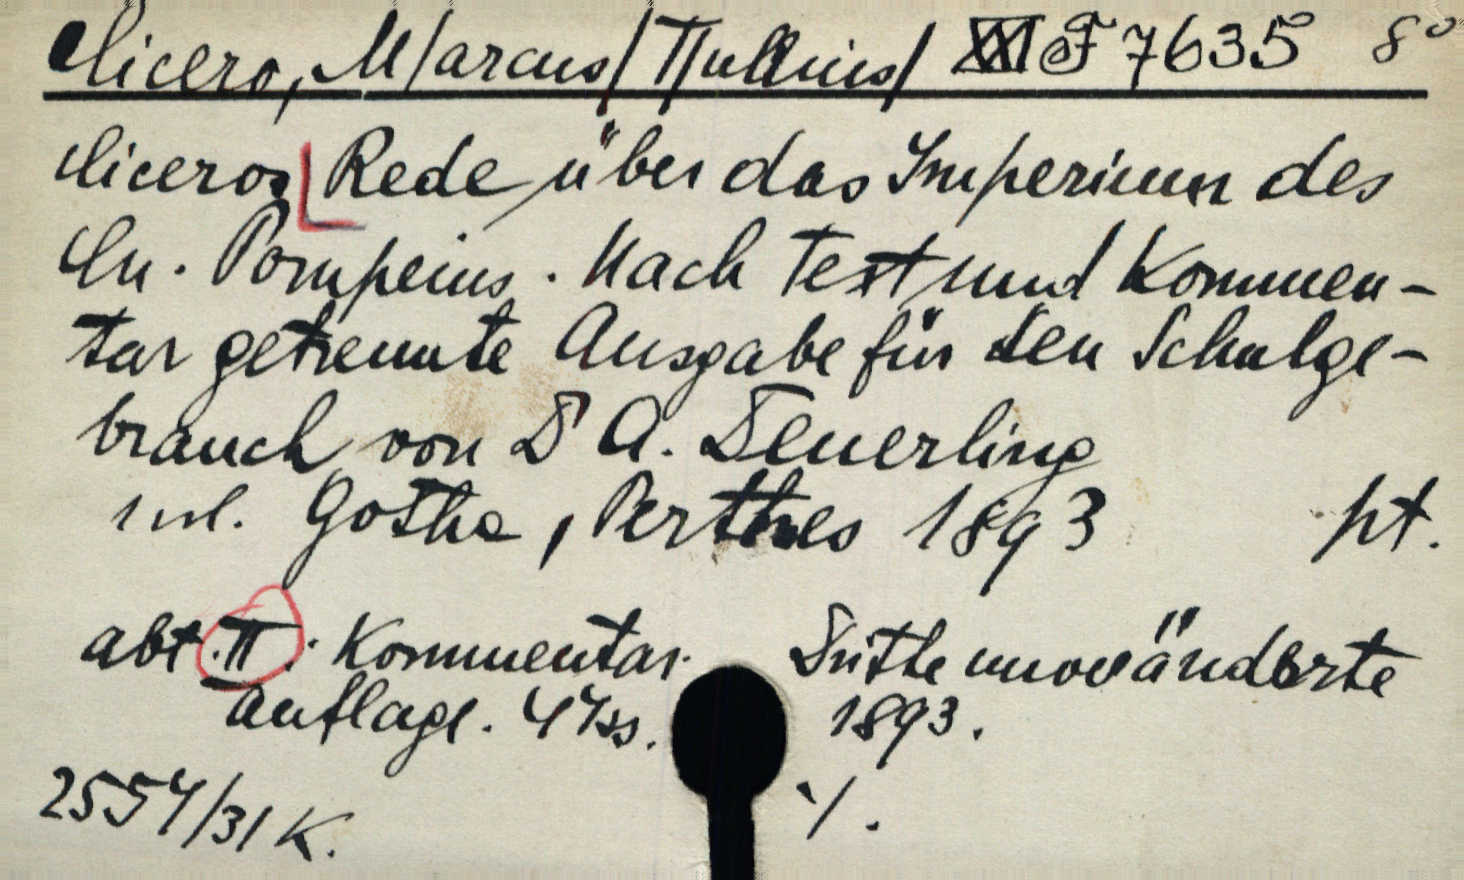 Cicero, M/arcus/ T/ullius/ XXI F 7635 8°
Ciceros Rede über das Imperium des
Cn. Pompeius. Nach Text und Kommen-
tar getrennte Ausgabe für den Schulge-
brauch von Dr A. Deuerling
1 vol. Gotha, Perthes 1893 pt.
abt. II: Kommentar. Dritte unveränderte
auflage. 47 ss. 1893.
2554/31 K. ./.